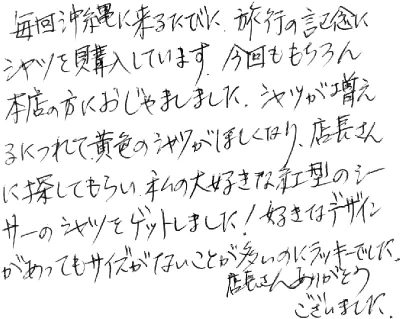 毎回沖縄に来るたびに、旅行の記念に
シャツを購入しています。今回ももちろん
本店の方におじゃましました。シャツが増え
るにつれて、黄色のシャツがほしくなり、店長さん
に探してもらい、私の大好きな紅型のシー
サーのシャツをゲットしました！好きなデザイン
があってもサイズがないことが多いのにラッキーでした。
店長さんありがとう
ございました。